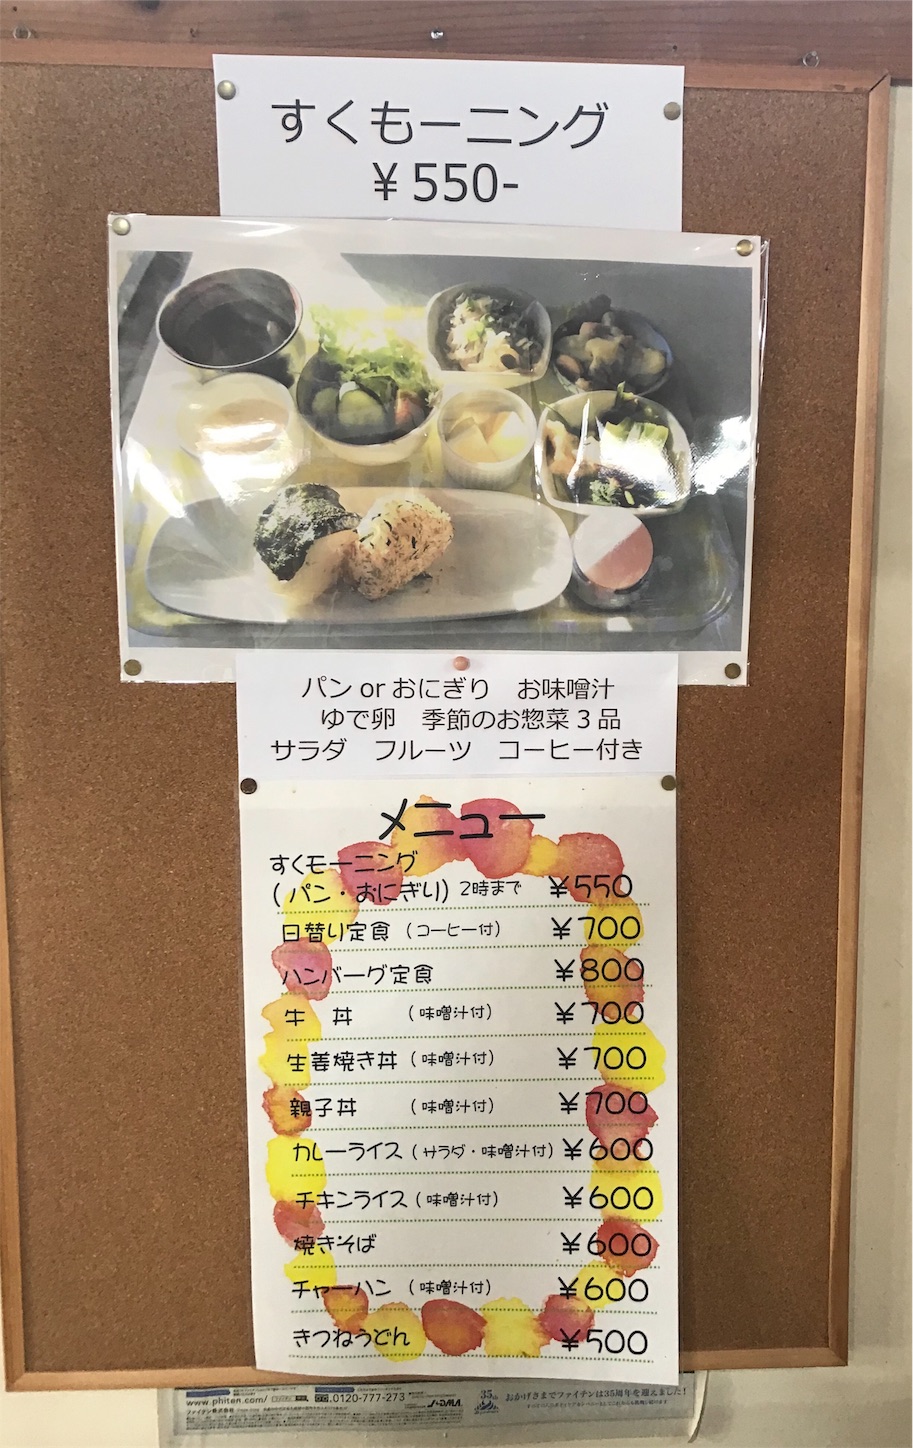 すくもーニング
¥550-
パン or おにぎり　お味噌汁
ゆで卵　季節のお惣菜3品
サラダ　フルーツ　コーヒー付き
メニュー
すくモーニング
(パン・おにぎり) 2時まで ¥550
日替り定食 (コーヒー付) ¥700
ハンバーグ定食 ¥800
牛丼 (味噌汁付) ¥700
生姜焼き丼 (味噌汁付) ¥700
親子丼 (味噌汁付) ¥700
カレーライス (サラダ・味噌汁付) ¥600
チキンライス (味噌汁付) ¥600
焼きそば ¥600
チャーハン (味噌汁付) ¥600
きつねうどん ¥500
www.phiten.com/ 0120-777-273 JADMA 35th おかげさまでファイテンは35周年を迎えました!
ファイテン株式会社